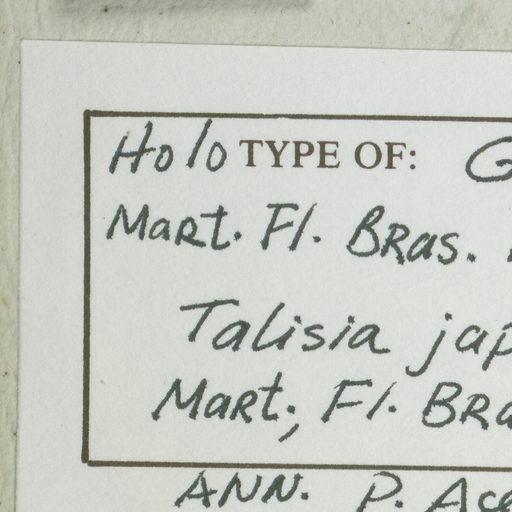 Holo TYPE OF: G
Mart. Fl. Bras.
Talisia jap
Mart; Fl. Bra
ANN. P. Ace